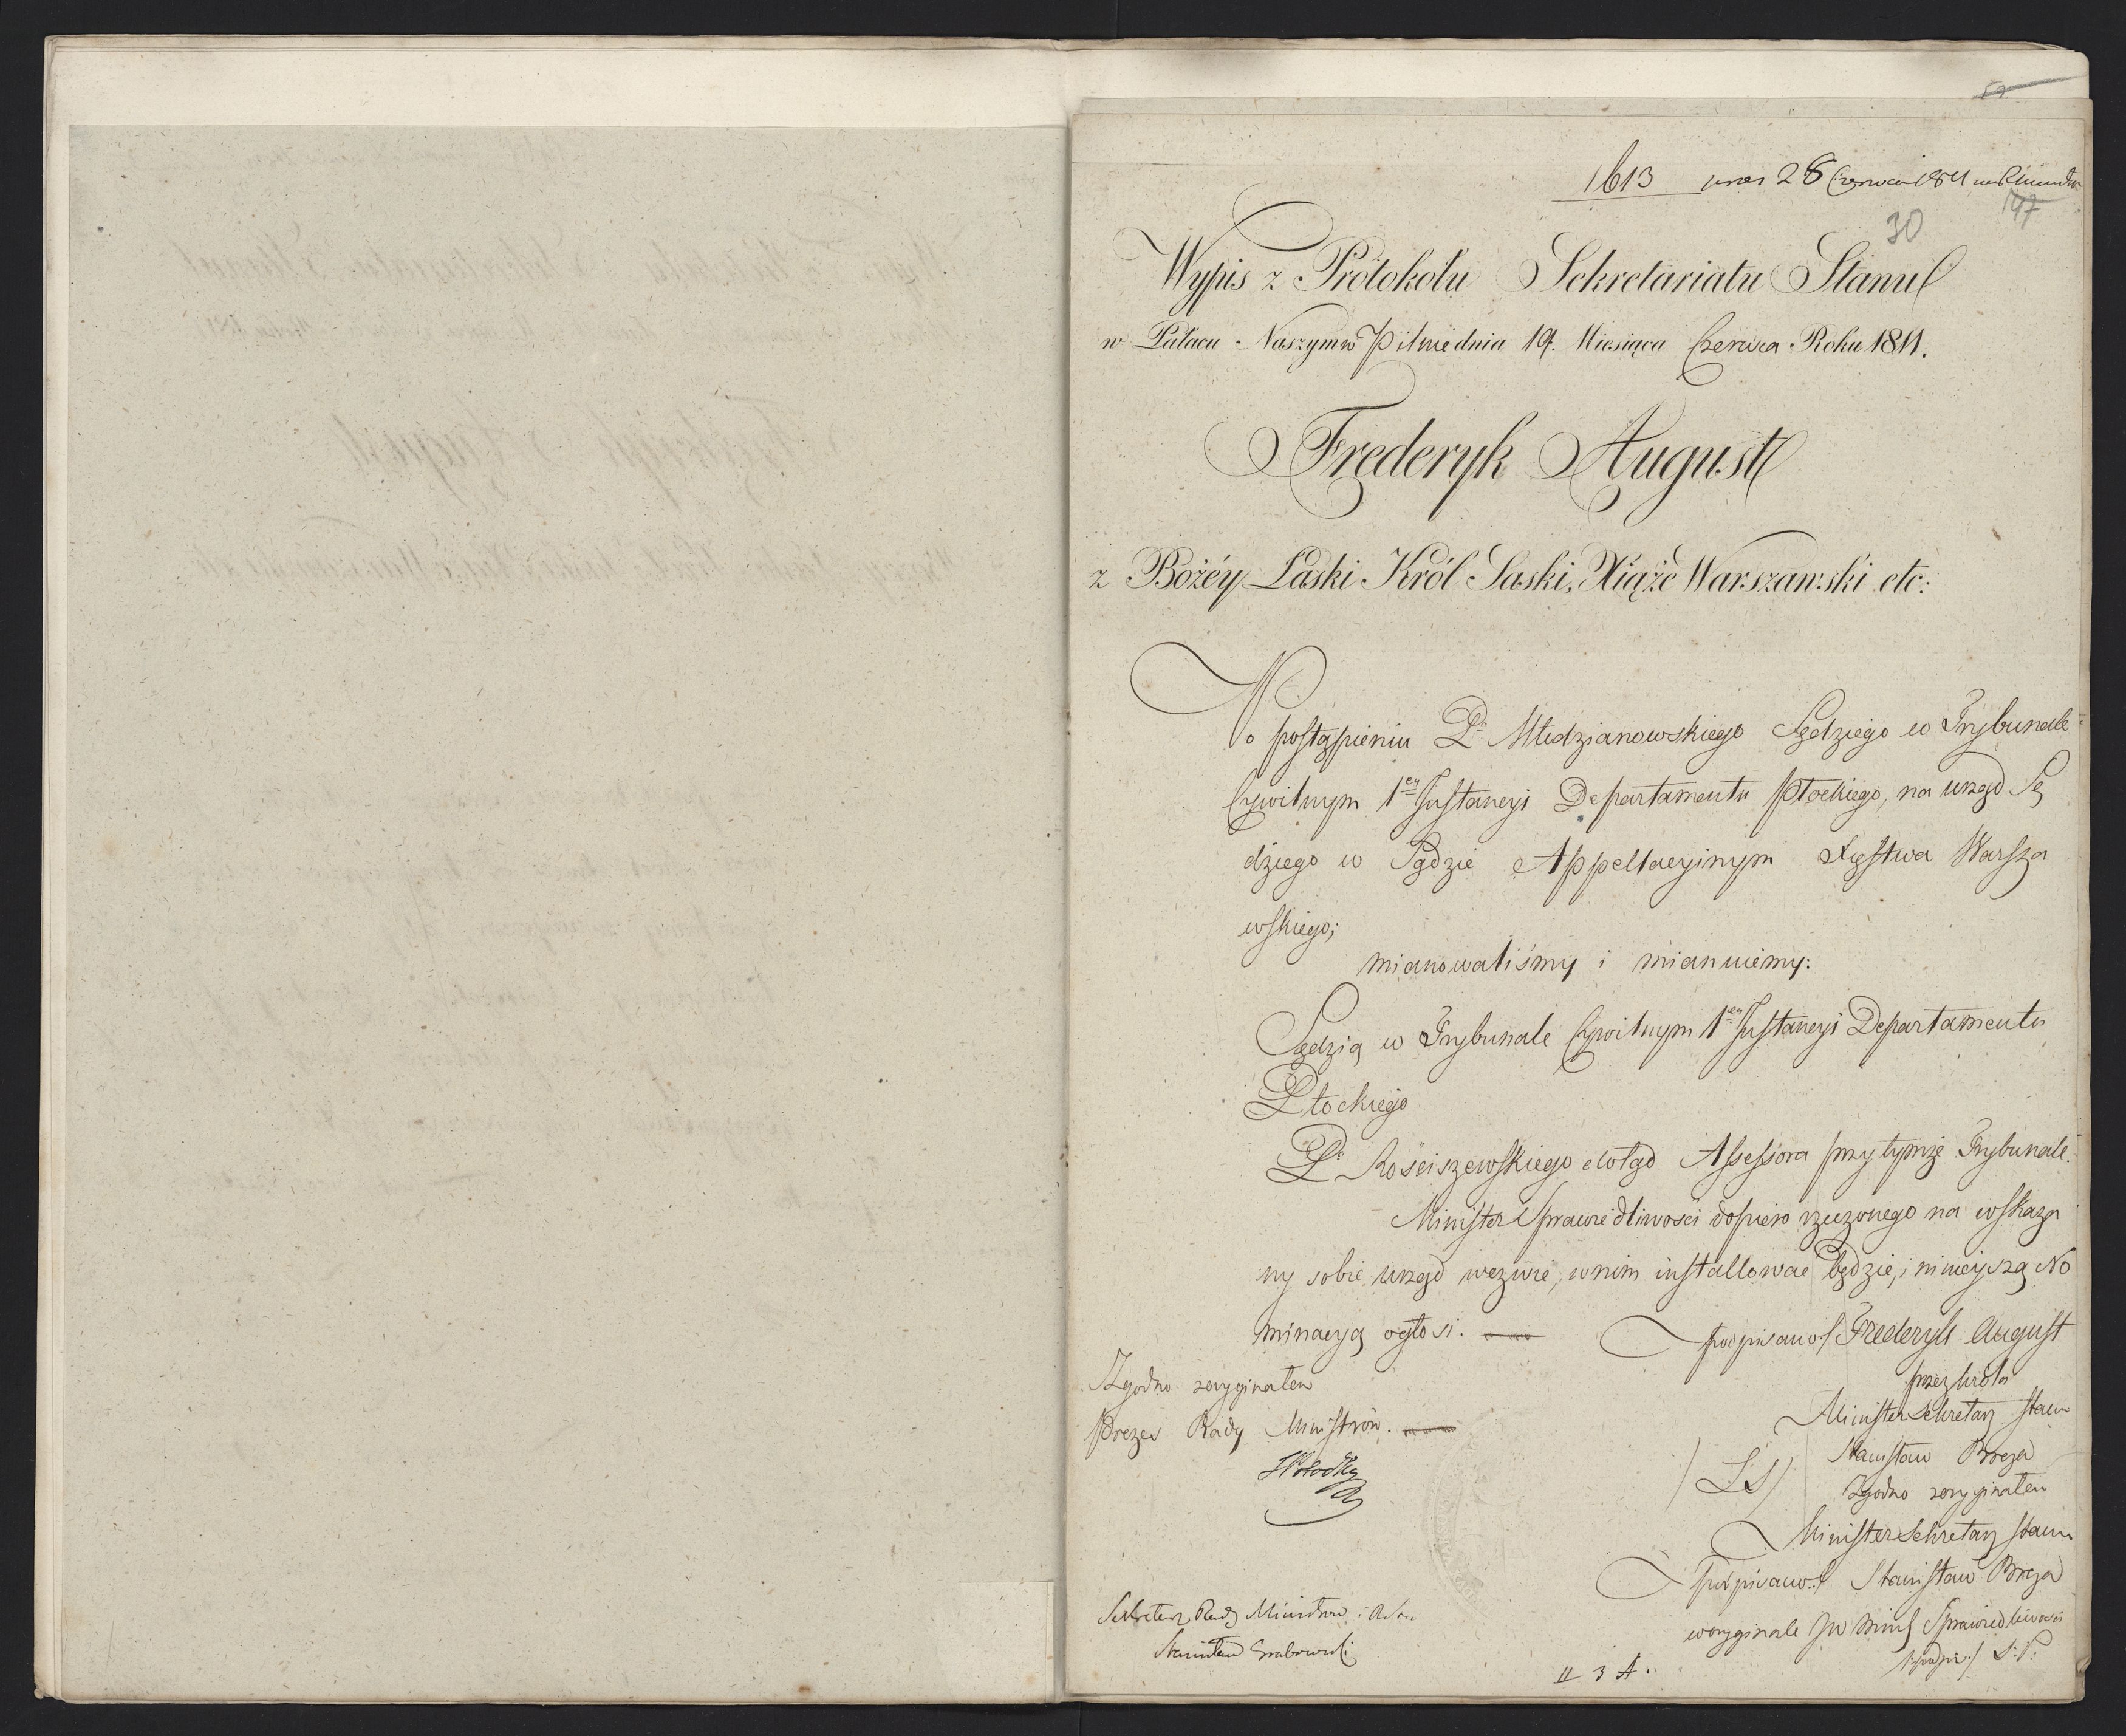 1613 28 Czerwca 1811
30 147
Wypis z Protokołu Sekretariatu Stanu
w Pałacu Naszym w Pilnie dnia 19. Miesiąca Czerwca Roku 1811.
Frederyk August
z Bożéy Łaski Król Saski, Xiążę Warszawski etc:
Po postąpieniu P. Młodzianowskiego Sędziego w Trybunale
Cywilnym 1ey Instancyi Departamentu Płockiego, na urząd Sę
dziego w Sądzie Appellacyinym Xięstwa Warsza
wskiego;
mianowaliśmy i mianuiemy:
Sędzią w Trybunale Cywilnym 1ey Instancyi Departamentu
Płockiego
P. Rościszewskiego dotąd Assessora przy tymże Trybunale.
Minister Sprawiedliwości dopiero rzeczonego na wskaza
ny sobie urząd wezwie, w nim installować będzie, i ninieyszą No
minacyą ogłosi.
podpisano/ Frederyk August
przez Króla
Minister Sekretarz Stanu
/LS/ Stanisław Breza
Zgodno z oryginałem
Minister Sekretarz Stanu
podpisano/ Stanisław Breza
w oryginale JW Minis Sprawiedliwości
/podpis/
Zgodno z oryginałem
Prezes Rady Ministrów.
Sekretarz Rady Ministrów i
Stanisław Grabowski
II 3 A.